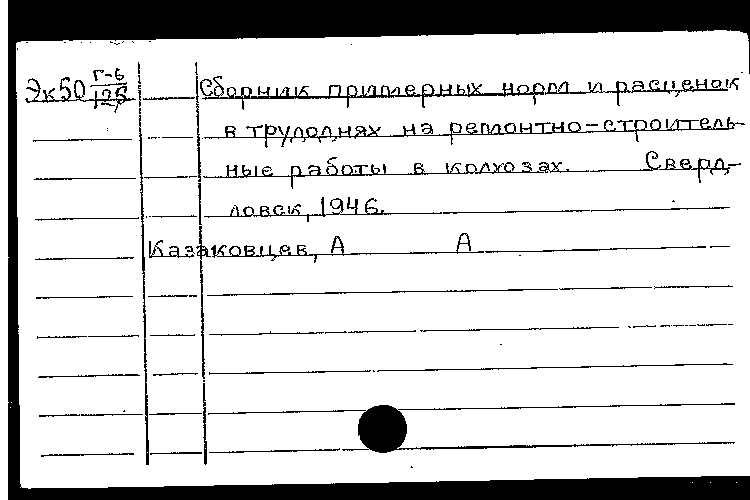 Эк50 Г-6
125
Сборник примерных норм и расценок
в трудоднях на ремонтно-строитель-
ные работы в колхозах. Сверд-
ловск, 1946.
Казаковцев, А А